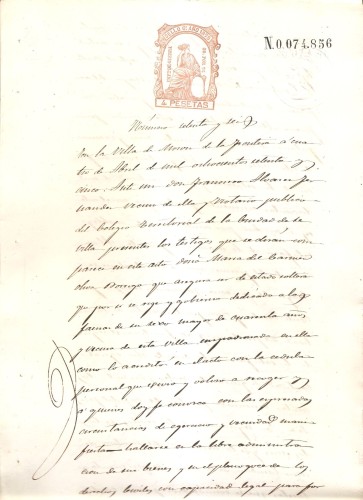 N.0.074.856
4 PESETAS
Número ochenta y seis
En la Villa de Moron de la frontera á cua
tro de Abril de mil ochocientos ochenta y
cinco. Ante mi don Francisco Alvarez
vecino de ella y Notario publico
del Colegio territorial de la ciudad de Se
villa presentes los testigos que se dirán com
parece en este acto doña Maria del Carmen
que asegura ser de estado soltera
que por si se rige y gobierna dedicada a las
faenas de su sexo mayor de cuarenta años
y vecina de esta villa empadronada en ella
como lo acreditó en el acto con la cedula
personal que exhibió y volvió a recoger y
á quien doy fé conozco con las espresadas
circunstancias de egercicio y vecindad mani
fiesta hallarse en la libre administra
cion de sus bienes y en el pleno goce de los
derechos civiles con capacidad legal para